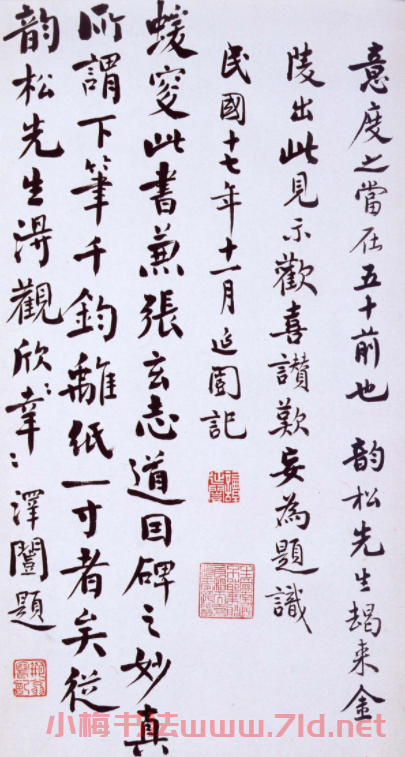 意度之當在五十前也 韵松先生朅来金
陵出此見示歡喜讚歎妄為題識
民國十七年十一月延闓記
蝯叜此書兼張玄志道因碑之妙真
所謂下筆千鈞離紙一寸者矣從
韵松先生得觀欣〻幸〻 澤闓題
小梅书法www.7ld.net